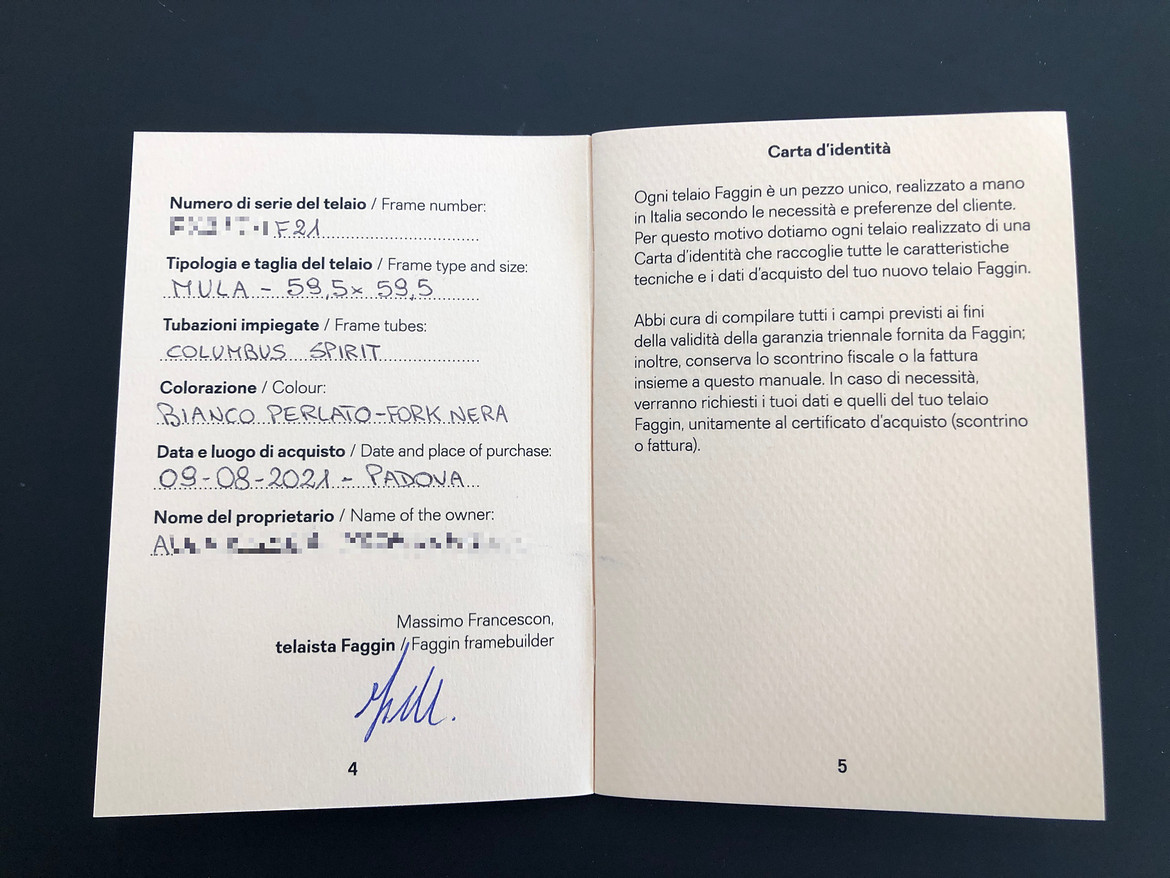 Numero di serie del telaio / Frame number:
F21
Tipologia e taglia del telaio / Frame type and size:
MULA - 59,5 x 59,5
Tubazioni impiegate / Frame tubes:
COLUMBUS SPIRIT
Colorazione / Colour:
BIANCO PERLATO-FORK NERA
Data e luogo di acquisto / Date and place of purchase:
09-08-2021 - PADOVA
Nome del proprietario / Name of the owner:
Massimo Francescon,
telaista Faggin / Faggin framebuilder
4
Carta d'identità
Ogni telaio Faggin è un pezzo unico, realizzato a mano
in Italia secondo le necessità e preferenze del cliente.
Per questo motivo dotiamo ogni telaio realizzato di una
Carta d'identità che raccoglie tutte le caratteristiche
tecniche e i dati d'acquisto del tuo nuovo telaio Faggin.
Abbi cura di compilare tutti i campi previsti ai fini
della validità della garanzia triennale fornita da Faggin;
inoltre, conserva lo scontrino fiscale o la fattura
insieme a questo manuale. In caso di necessità,
verranno richiesti i tuoi dati e quelli del tuo telaio
Faggin, unitamente al certificato d'acquisto (scontrino
o fattura).
5